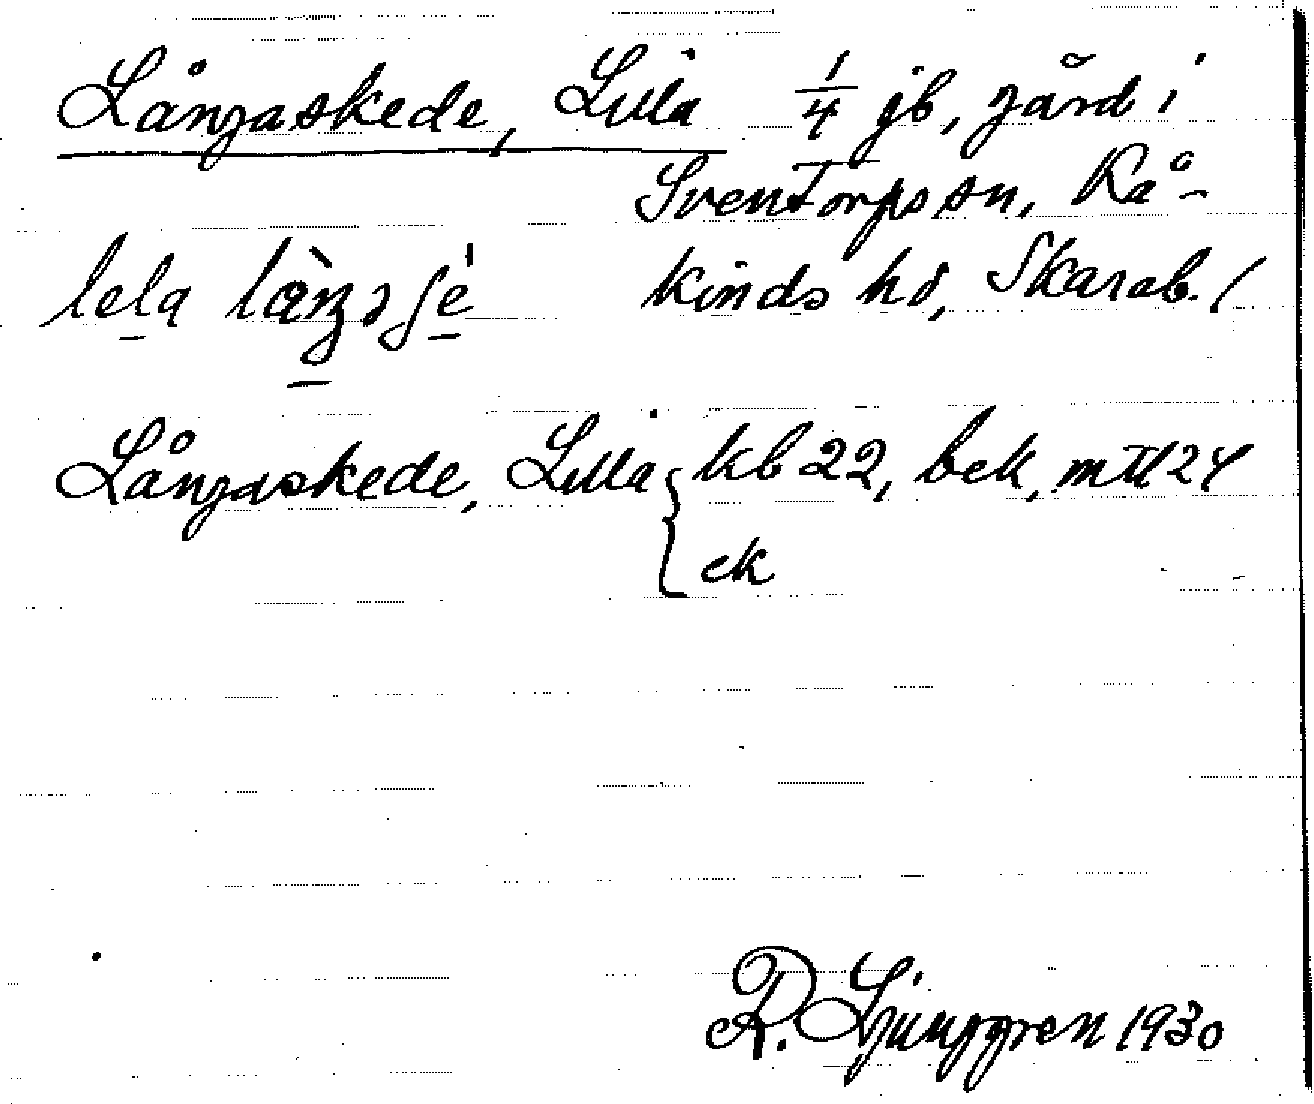 Långaskede, Lilla 1/4 jb, gård i
Sventorps sn, Rå-
kinds hd, Skarab. l
lela
Långaskede, Lilla { kb 22, bek, mtl 24
ek
R. Ljunggren 1930